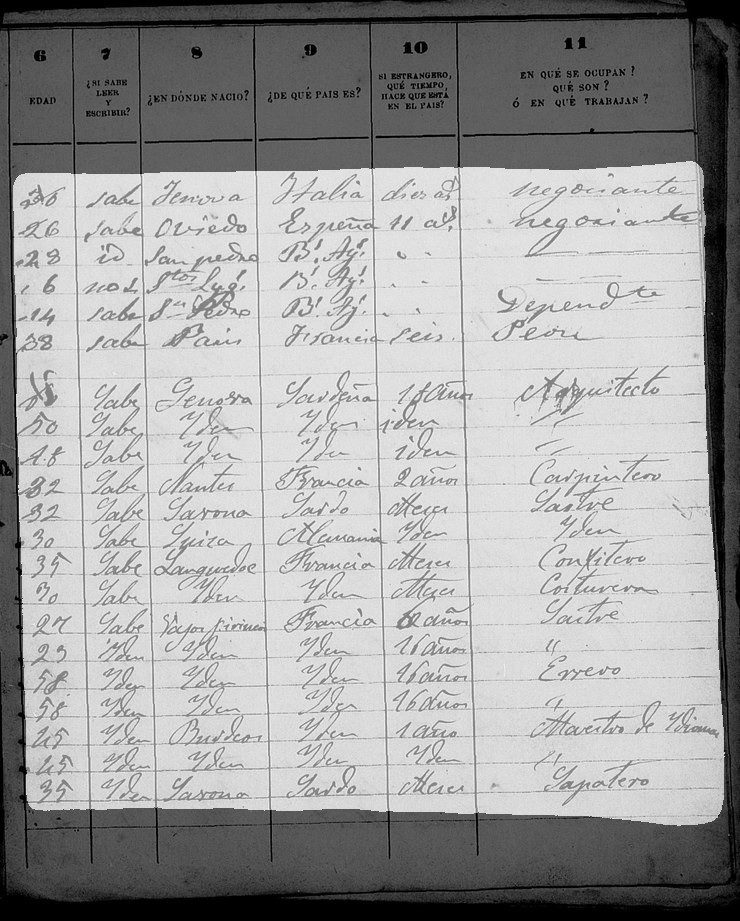 6 7 8 9 10 11
EDAD ¿SI SABE LEER Y ESCRIBIR? ¿EN DÓNDE NACIO? ¿DE QUÉ PAIS ES? SI ESTRANGERO, QUÉ TIEMPO HACE QUE ESTÁ EN EL PAIS? EN QUÉ SE OCUPAN? QUÉ SON? Ó EN QUÉ TRABAJAN?
36 sabe Jenova Italia negociante
26 sabe Oviedo España 11 as. negociante
28 id San pedro Bs. Ays. " "
6 no s. Stos Lugs. Bs. Ays. " "
14 sabe Sn Pedro Bs. Ays. " " Dependte
38 sabe Paris Francia seis. Peon
Sabe Genova Sardeña 18 Años Arquitecto
50 Sabe Yden Yden iden "
48 Sabe Yden Yden iden "
32 Sabe Nantes Francia 2 años Carpintero
32 Sabe Savona Sardo Meses Sastre
30 Sabe Suiza Alemania Yden Yden
35 Sabe Languedoc Francia Meses Confitero
30 Sabe Yden Yden Meses Costurera
27 Sabe Vajos pirineos Francia años Sastre
23 Yden Yden Yden 16 años "
58 Yden Yden Yden 16 años Errero
58 Yden Yden Yden 16 años "
45 Yden Burdeos Yden 1 año Maestro de Ydiomas
45 Yden Yden Yden Yden "
35 Yden Savona Sardo Meses Sapatero